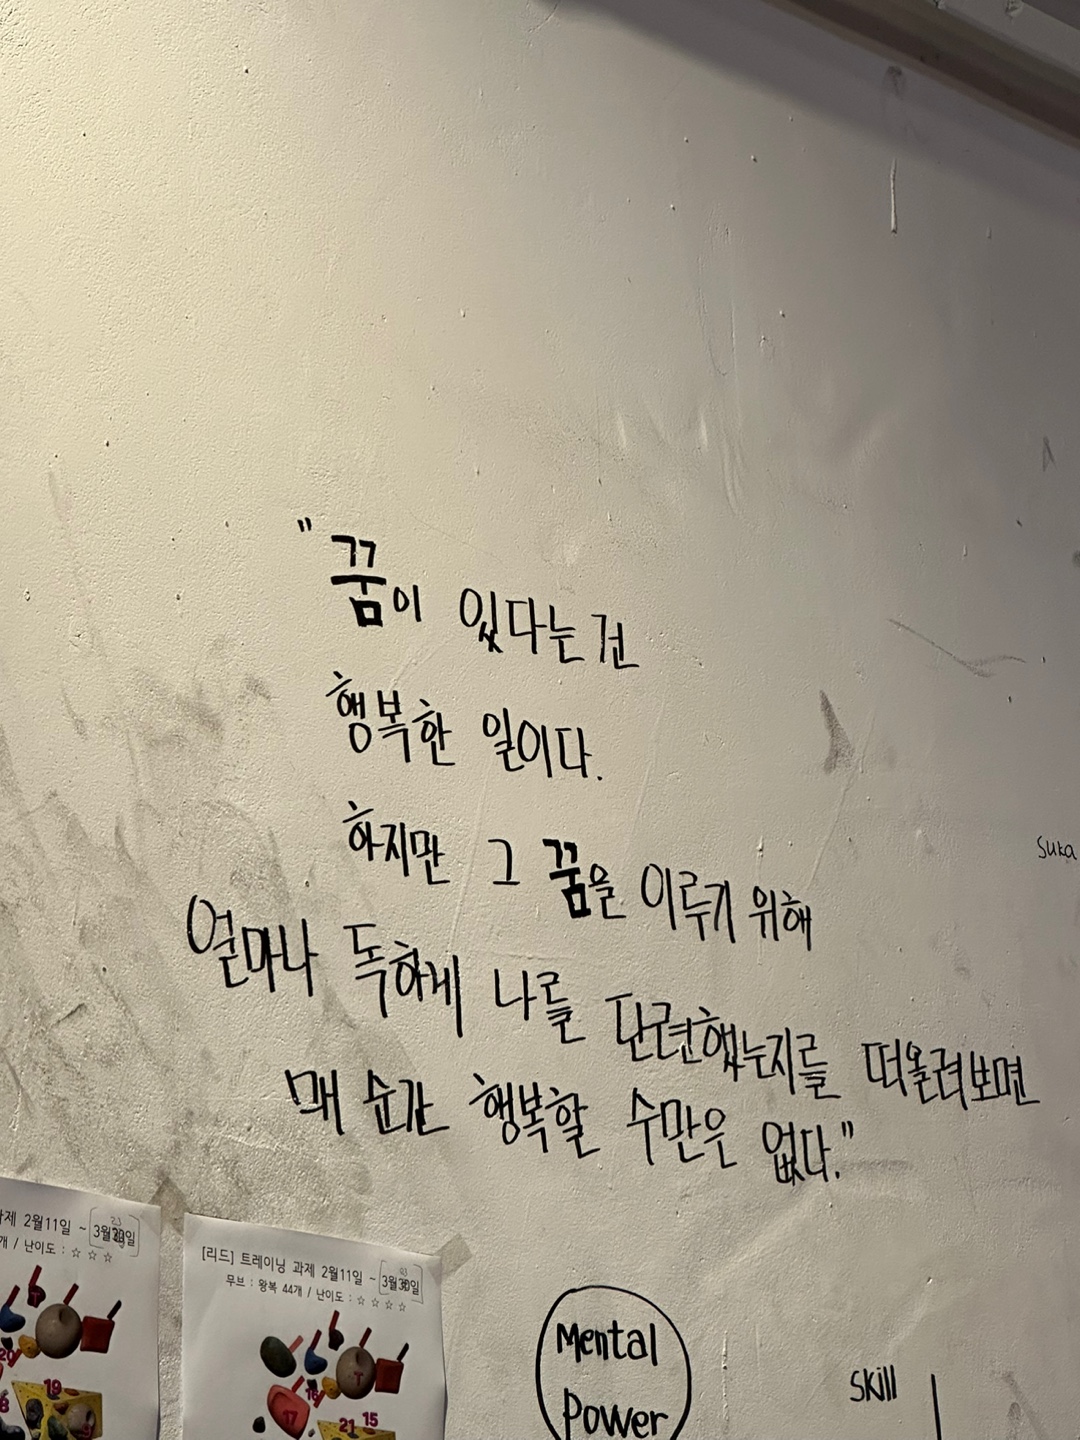 "꿈이 있다는 건
행복한 일이다.
하지만 그 꿈을 이루기 위해
얼마나 독하게 나를 단련했는지를 떠올려보면
매 순간 행복할 수만은 없다."
suka
제 2월11일 ~
개 / 난이도 : ☆ ☆ ☆
20
19
8
[리드] 트레이닝 과제 2월11일 ~ 3월30일
무브 : 왕복 44개 / 난이도 : ☆ ☆ ☆ ☆
T
16
17
21 15
Mental
Power
Skill